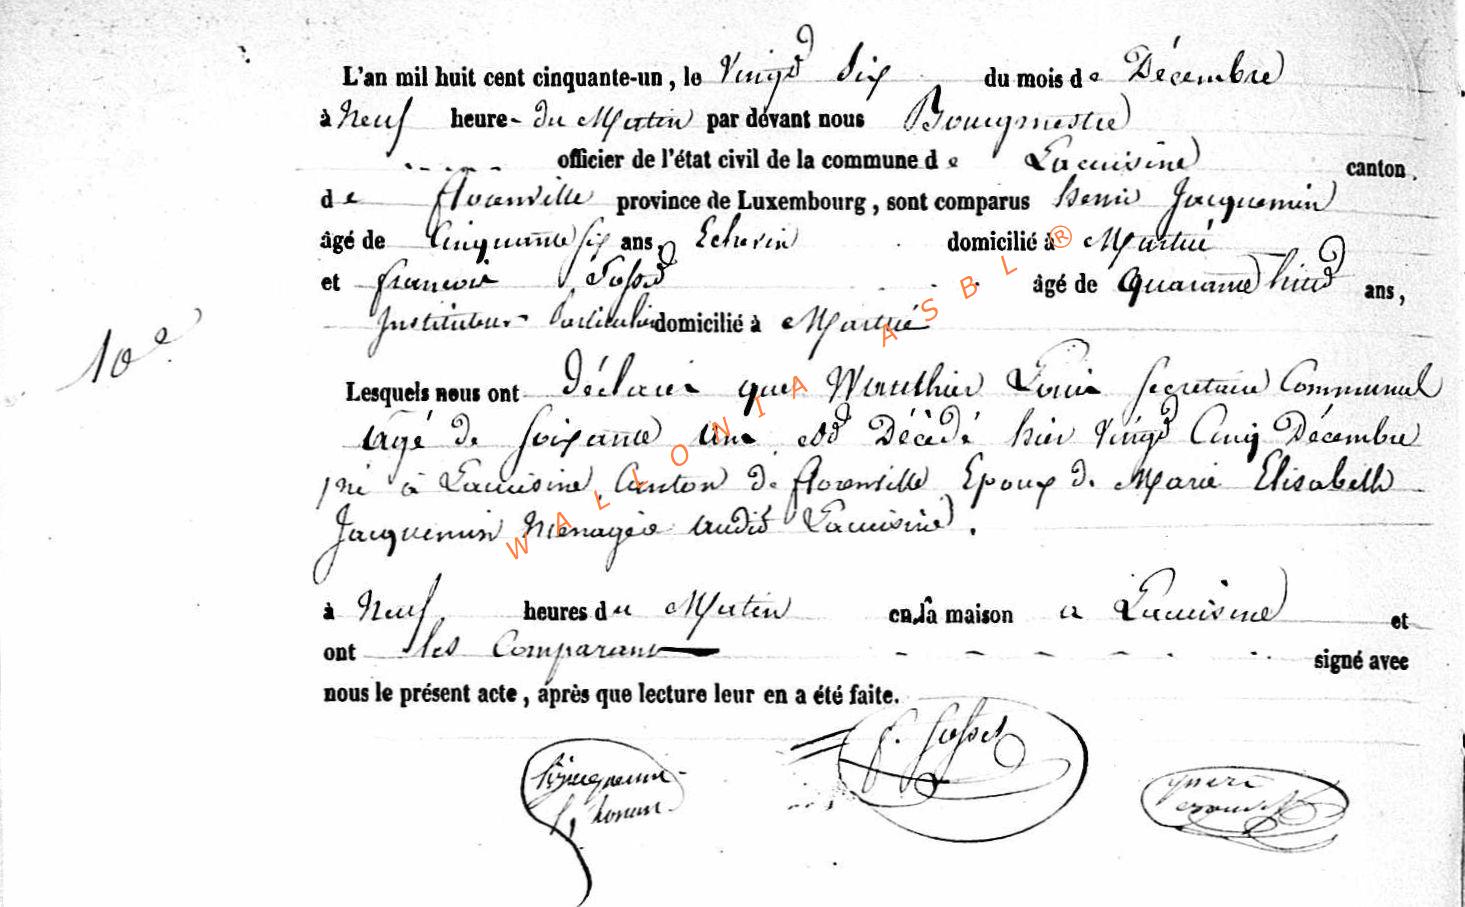 L'an mil huit cent cinquante-un, le Vingt Six du mois de Décembre
à Neuf heure du Matin par dévant nous Bourgmestre
officier de l'état civil de la commune de Lacuisine canton
de florenville province de Luxembourg, sont comparus henri Jacquemin
âgé de Cinquante six ans, Echevin domicilié à Martué
et françois Sosset âgé de quarante huit ans,
Instituteur Particulier domicilié à Martué
10e
Lesquels nous ont Déclaré que Wauthier Louis Secretaire Communal
agé de soixante un est Décédé hier Vingt Cinq Décembre
né à Lacuisine Canton de florenville Epoux de Marie Elisabeth
Jacquemin Menagée audit Lacuisine.
à Neuf heures du Matin en la maison a Lacuisine et
ont les Comparant signé avec
nous le présent acte, après que lecture leur en a été faite.
hjacquemin
f. Sosset
WALLONIA ASBL ®